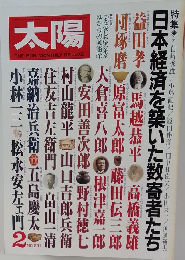 太陽
特集
日本経済を築いた数寄者たち
益田孝 馬越恭平 高橋義雄
団琢磨 原富太郎 藤田伝三郎
大倉喜八郎 根津嘉一郎
安田善次郎 野村徳七
村山龍平 山口吉郎兵衛
住友吉左衛門 畠山一清
嘉納治兵衛 五島慶太
小林一三 松永安左エ門
2